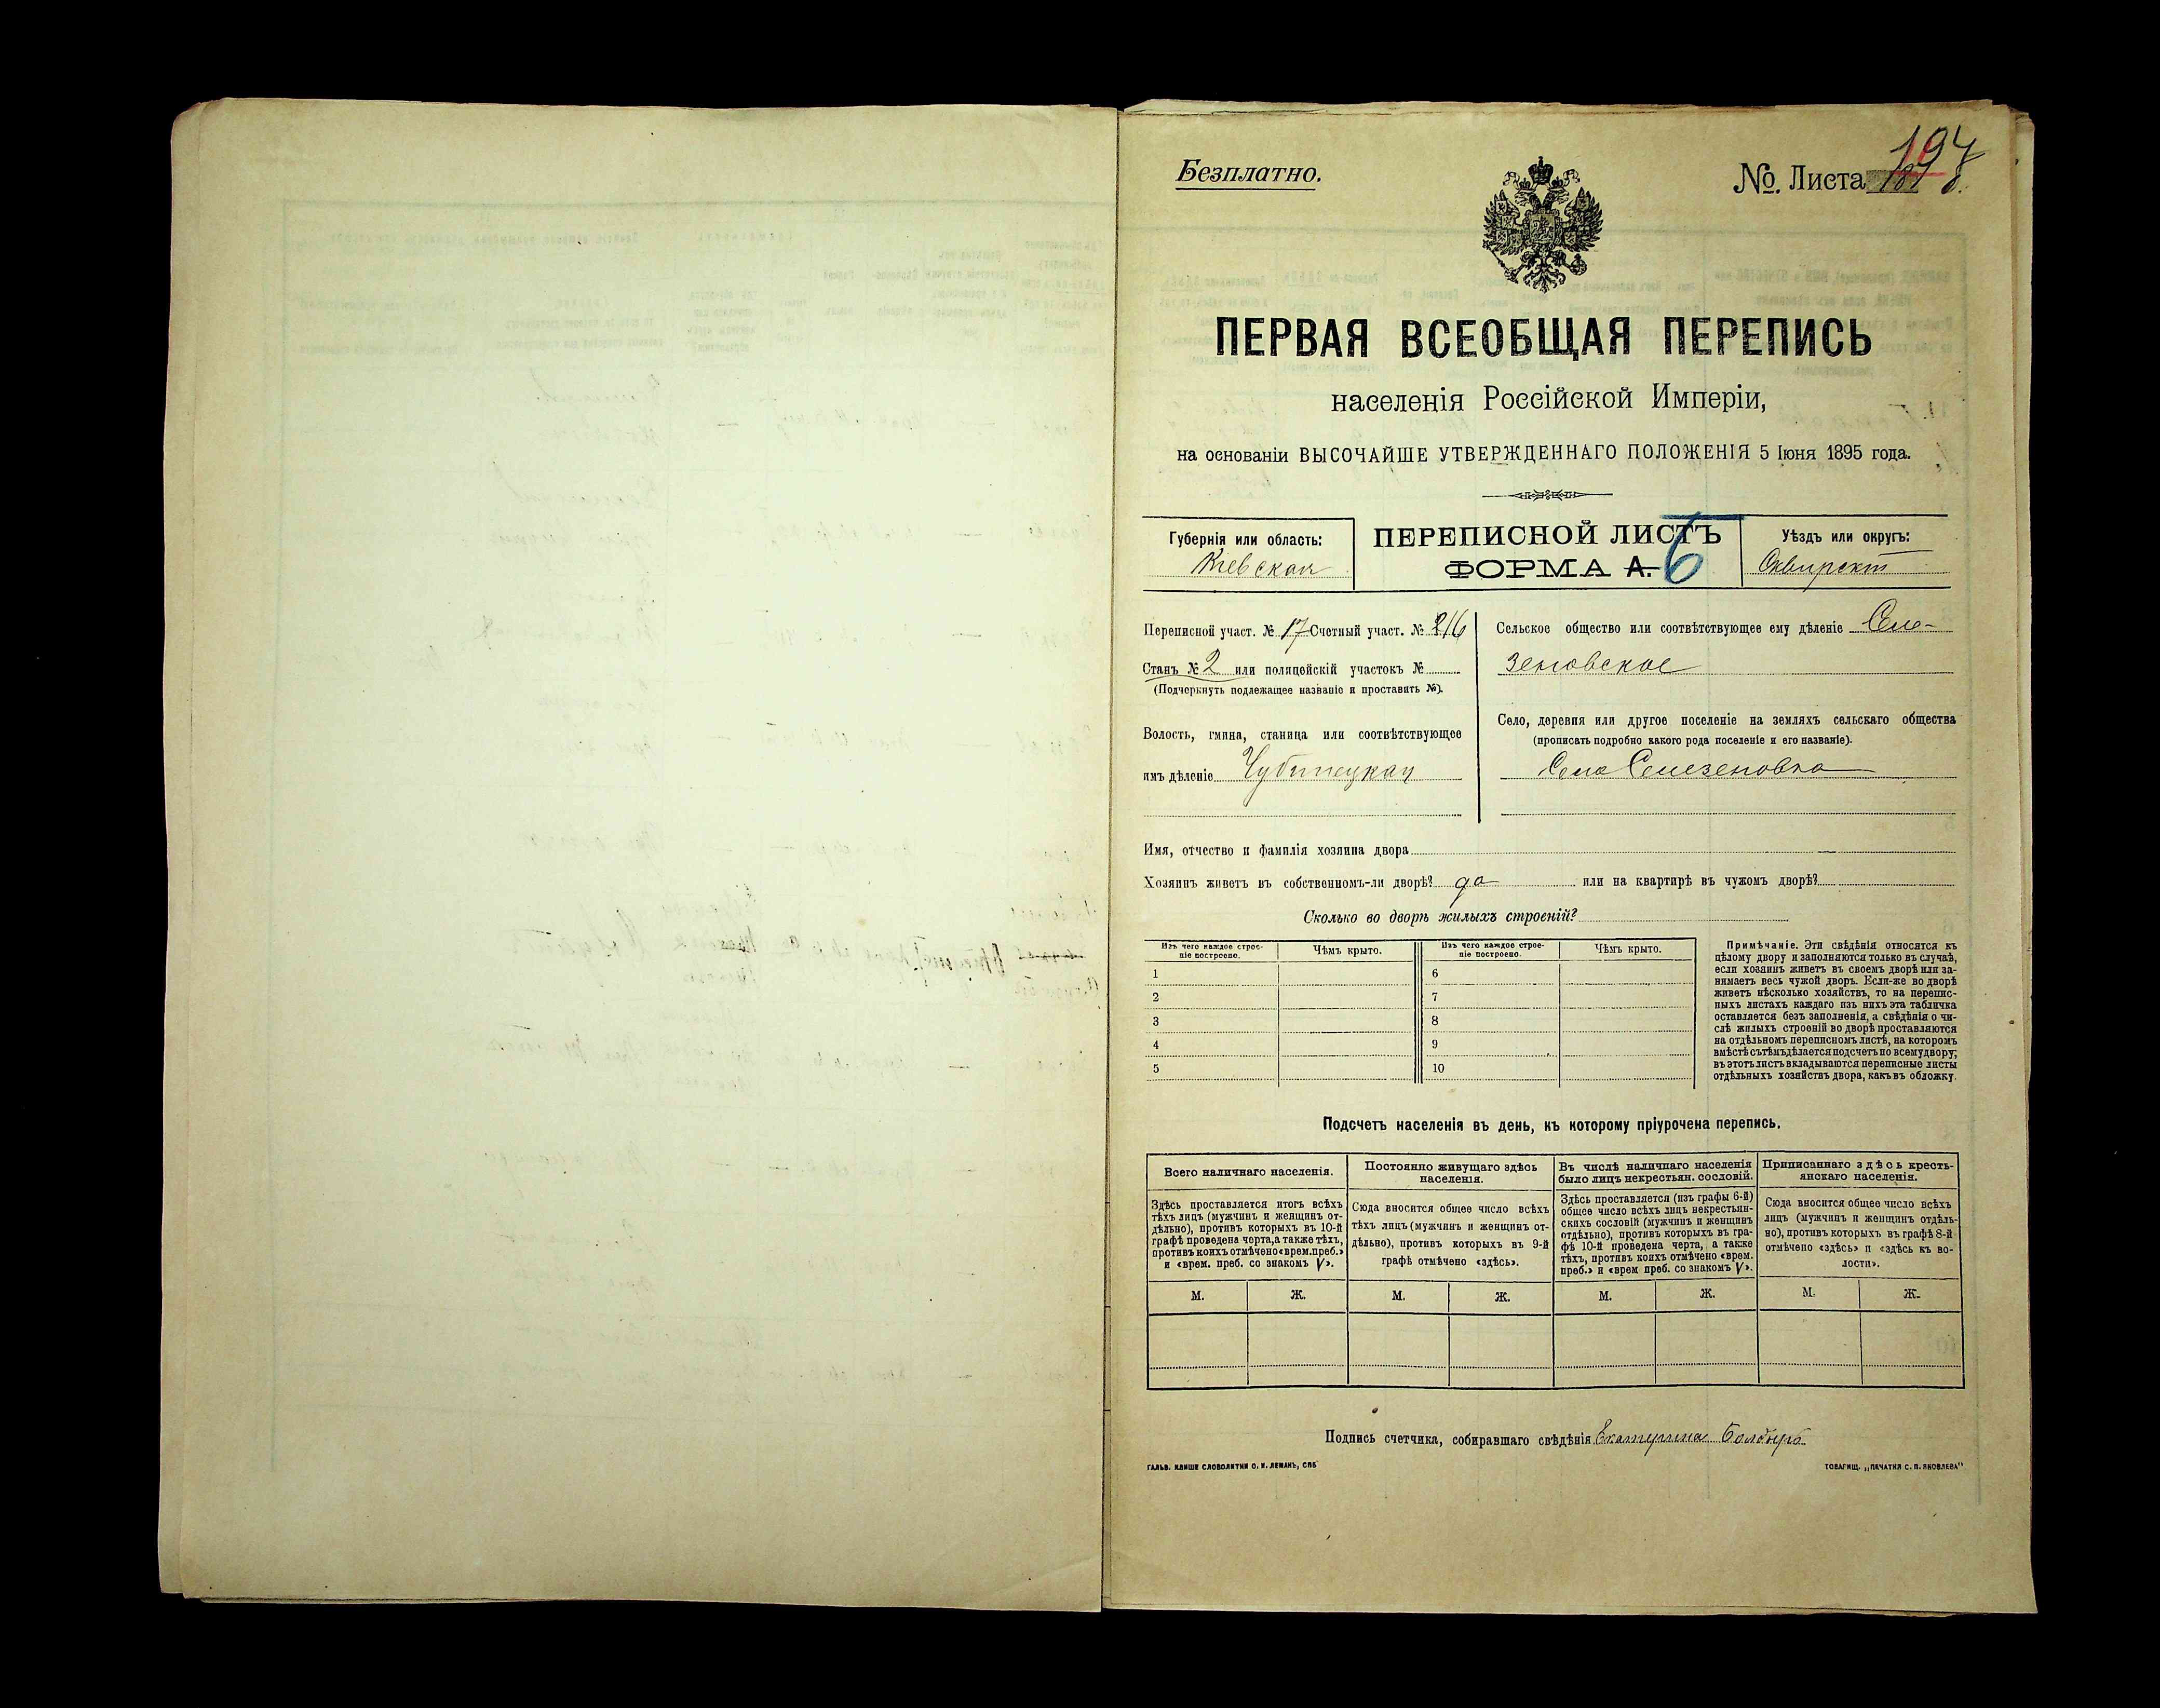 Безплатно.
№. Листа
ПЕРВАЯ ВСЕОБЩАЯ ПЕРЕПИСЬ
населенія Россійской Имперіи,
на основаніи ВЫСОЧАЙШЕ УТВЕРЖДЕННАГО ПОЛОЖЕНІЯ 5 Іюня 1895 года.
Губернія или область:
Кіевская
ПЕРЕПИСНОЙ ЛИСТЪ
ФОРМА А. Б
Уѣздъ или округъ:
Сквирскій
Переписной участ. № 17 Счетный участ. № 216
Станъ № 2 или полицейскій участокъ №
(Подчеркнуть подлежащее названіе и проставить №).
Волость, гмина, станица или соотвѣтствующее
имъ дѣленіе Чубинецкая
Сельское общество или соотвѣтствующее ему дѣленіе Селе-
зеновское
Село, деревня или другое поселеніе на земляхъ сельскаго общества
(прописать подробно какого рода поселеніе и его названіе).
Село Селезеновка
Имя, отчество и фамилія хозяина двора
Хозяинъ живетъ въ собственномъ-ли дворѣ? да или на квартирѣ въ чужомъ дворѣ?
Сколько во дворѣ жилыхъ строеній?
Изъ чего каждое строе-
ніе построено.
Чѣмъ крыто.
Изъ чего каждое строе-
ніе построено.
Чѣмъ крыто.
1
2
3
4
5
6
7
8
9
10
Примѣчаніе. Эти свѣдѣнія относятся къ
цѣлому двору и заполняются только въ случаѣ,
если хозяинъ живетъ въ своемъ дворѣ или за-
нимаетъ весь чужой дворъ. Если-же во дворѣ
живетъ нѣсколько хозяйствъ, то на перепис-
ныхъ листахъ каждаго изъ нихъ эта табличка
оставляется безъ заполненія, а свѣдѣнія о чи-
слѣ жилыхъ строеній во дворѣ проставляются
на отдѣльномъ переписномъ листѣ, на которомъ
вмѣстѣ съ тѣмъ дѣлается подсчетъ по всему двору;
въ этотъ листъ вкладываются переписные листы
отдѣльныхъ хозяйствъ двора, какъ въ обложку.
Подсчетъ населенія въ день, къ которому пріурочена перепись.
Всего наличнаго населенія.
Здѣсь проставляется итогъ всѣхъ
тѣхъ лицъ (мужчинъ и женщинъ от-
дѣльно), противъ которыхъ въ 10-й
графѣ проведена черта, а также тѣхъ,
противъ коихъ отмѣчено «врем. преб.»
и «врем. преб. со знакомъ V».
Постоянно живущаго здѣсь
населенія.
Сюда вносится общее число всѣхъ
тѣхъ лицъ (мужчинъ и женщинъ от-
дѣльно), противъ которыхъ въ 9-й
графѣ отмѣчено «здѣсь».
Въ числѣ наличнаго населенія
было лицъ некрестьян. сословій.
Здѣсь проставляется (изъ графы 6-й)
общее число всѣхъ лицъ некрестьян-
скихъ сословій (мужчинъ и женщинъ
отдѣльно), противъ которыхъ въ гра-
фѣ 10-й проведена черта, а также
тѣхъ, противъ коихъ отмѣчено «врем.
преб.» и «врем преб. со знакомъ V».
Приписаннаго здѣсь кресть-
янскаго населенія.
Сюда вносится общее число всѣхъ
лицъ (мужчинъ и женщинъ отдѣль-
но), противъ которыхъ въ графѣ 8-й
отмѣчено «здѣсь» и «здѣсь къ во-
лости».
М. Ж. М. Ж. М. Ж. М. Ж.
Подпись счетчика, собиравшаго свѣдѣнія Екатерина
ГАЛЬВ. КЛИШЕ СЛОВОЛИТНИ О. И. ЛЕМАНЪ, СПБ
ТОВАРИЩ. „ПЕЧАТНЯ С. П. ЯКОВЛЕВА"